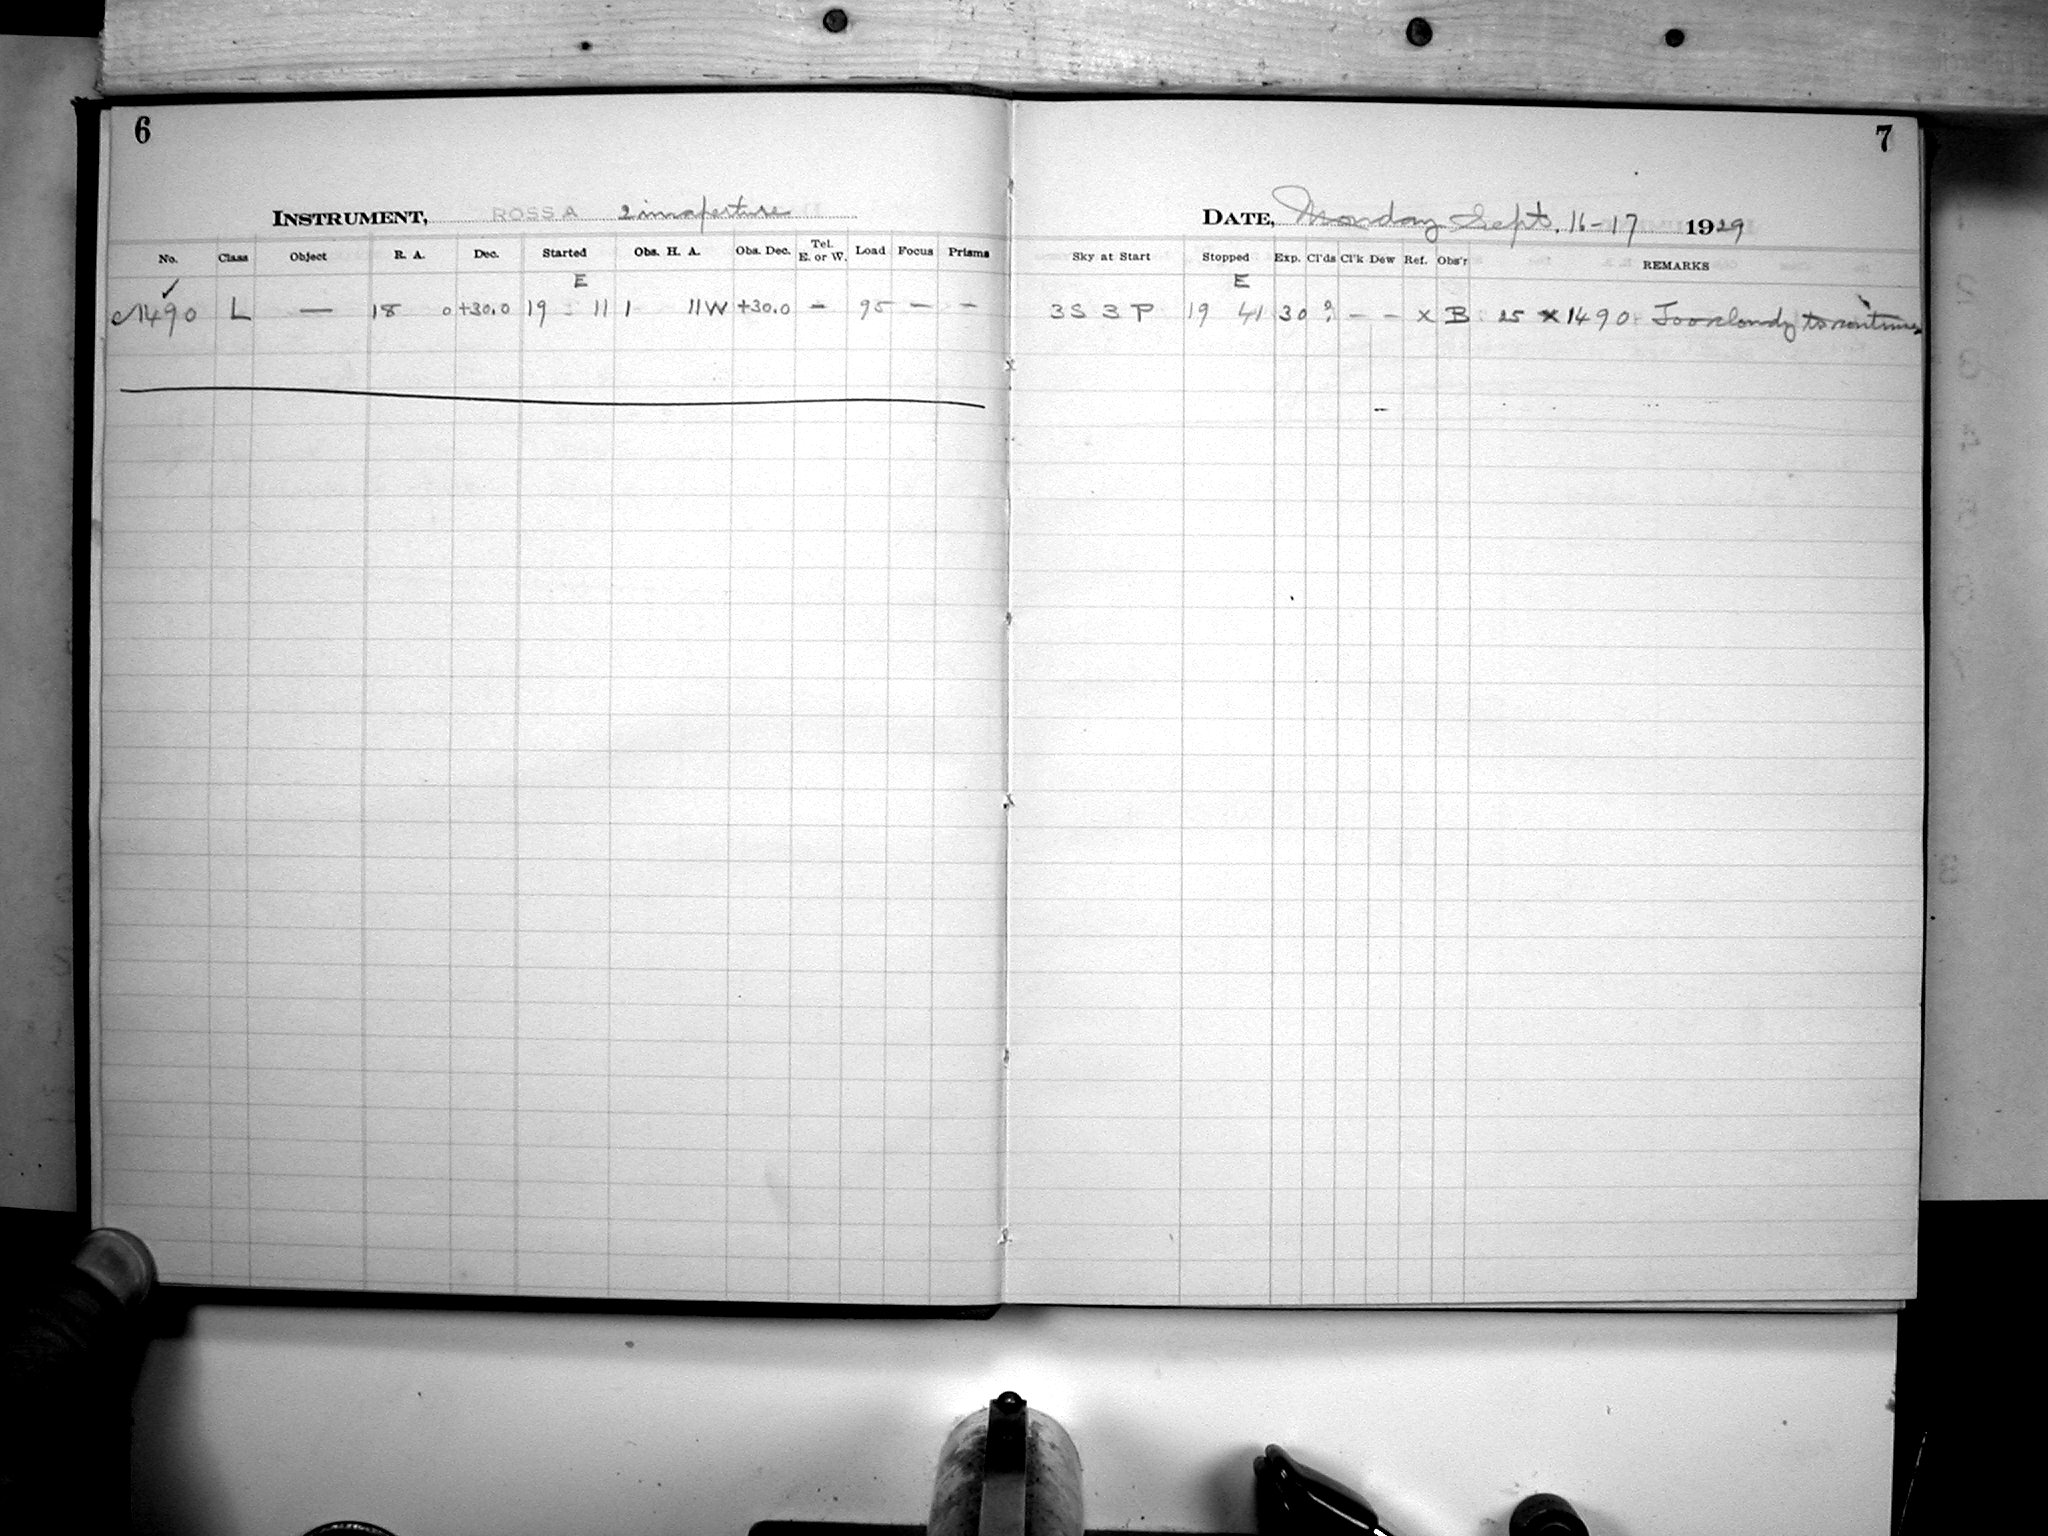 6
INSTRUMENT, ROSS A 2 in aperture
No. Class Object R. A. Dec. Started Obs. H. A. Obs. Dec. Tel. E. or W. Load Focus Prisms
E
✓
1490 L — 18 0 +30.0 19 11 1 11W +30.0 – 95 – –
7
DATE, Monday Sept. 16-17 1929
Sky at Start Stopped Exp. Cl'ds Cl'k Dew Ref. Obs'r REMARKS
E
3S 3P 19 41 30 ? – – x B 25 x 1490 Too cloudy to continue